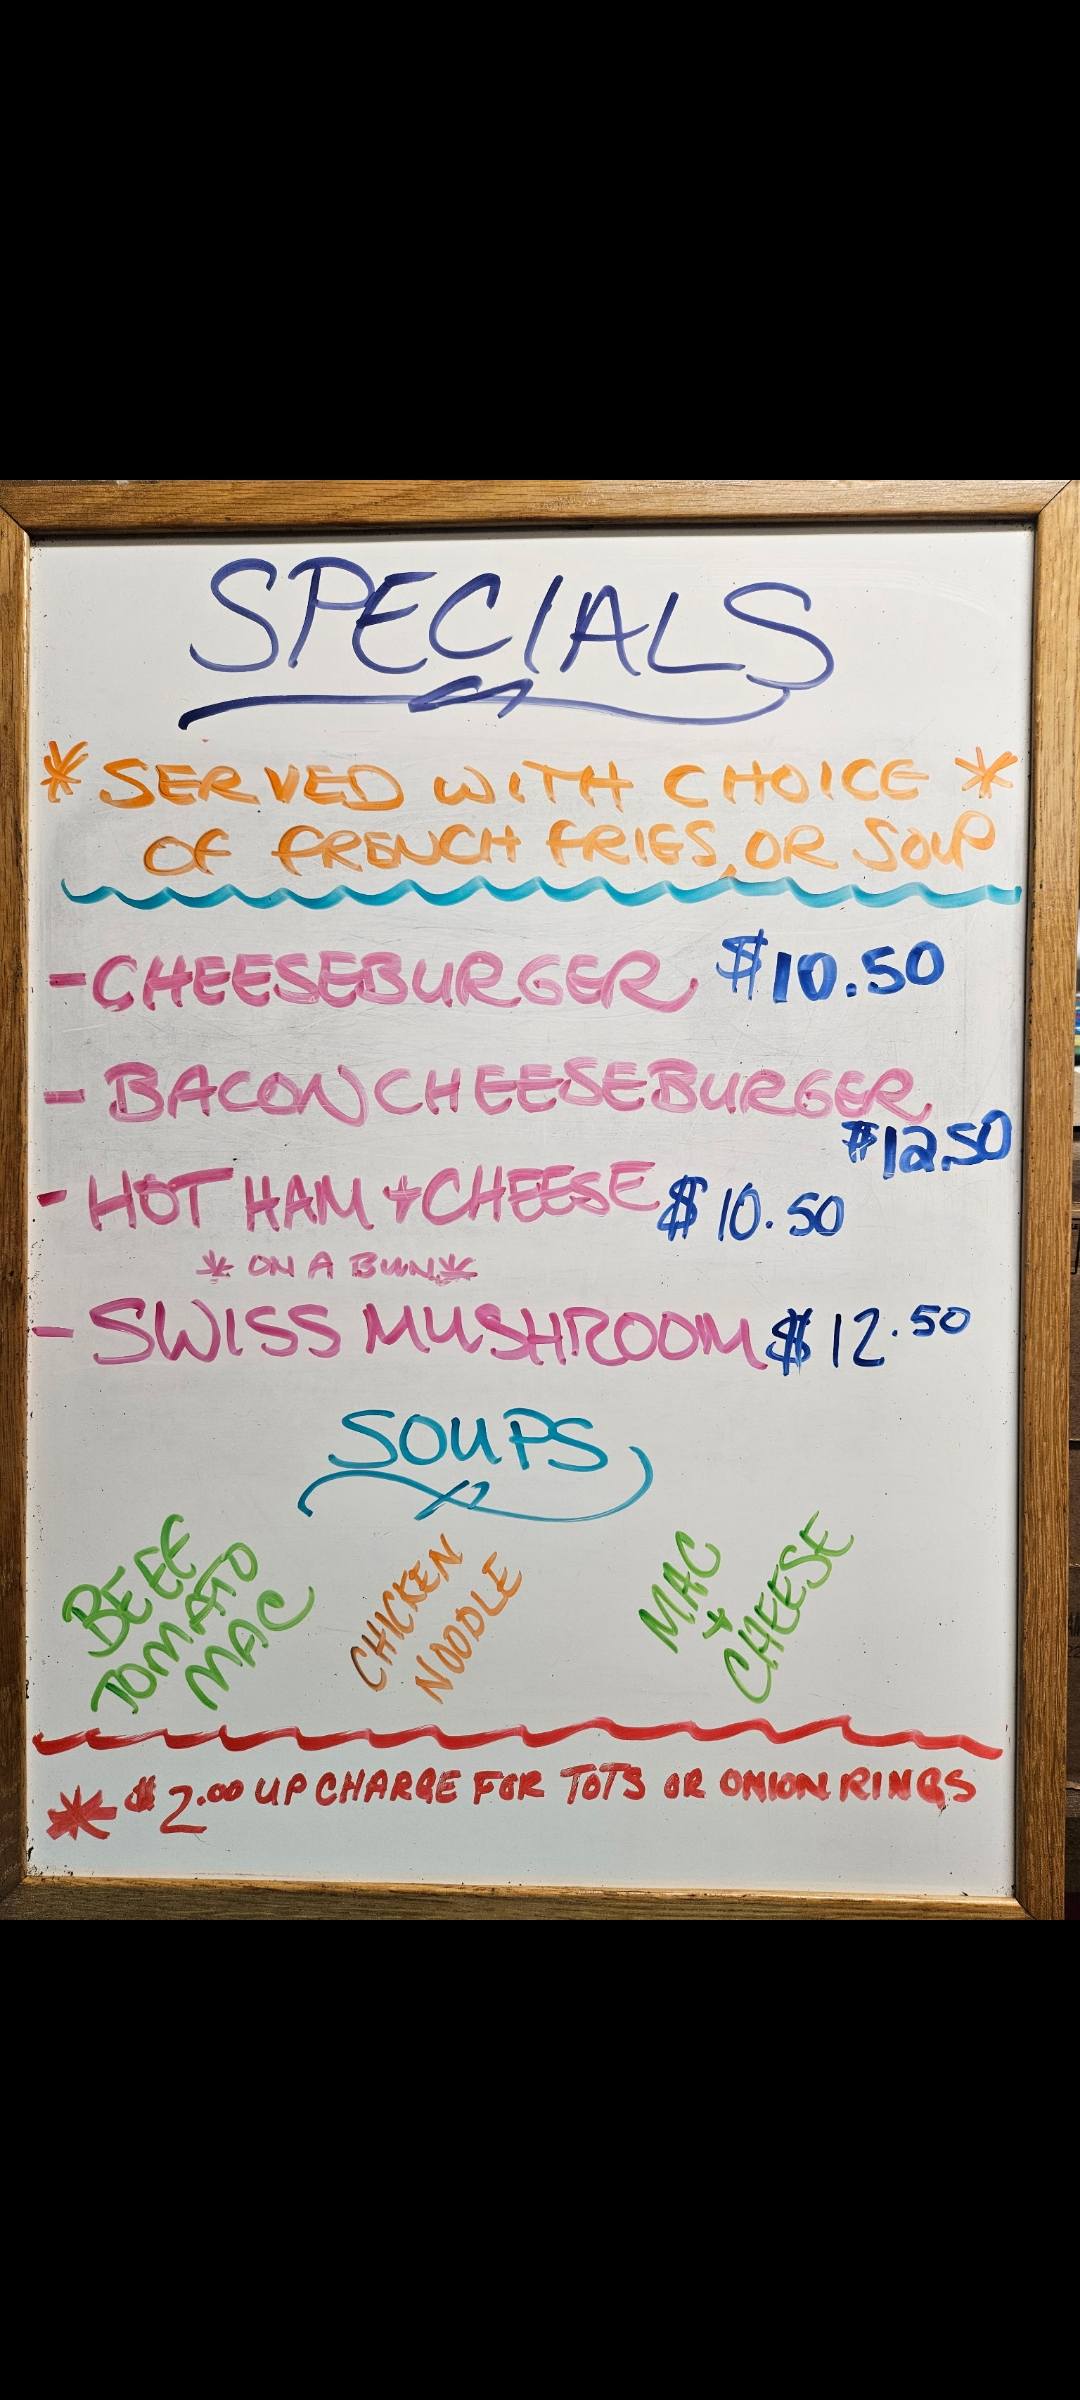 SPECIALS
* SERVED WITH CHOICE *
OF FRENCH FRIES, OR SOUP
- CHEESEBURGER $10.50
- BACON CHEESEBURGER
$12.50
- HOT HAM + CHEESE $10.50
* ON A BUN *
- SWISS MUSHROOM $12.50
SOUPS
BEEF
TOMATO
MAC
CHICKEN
NOODLE
MAC
+
CHEESE
* $2.00 UP CHARGE FOR TOTS OR ONION RINGS